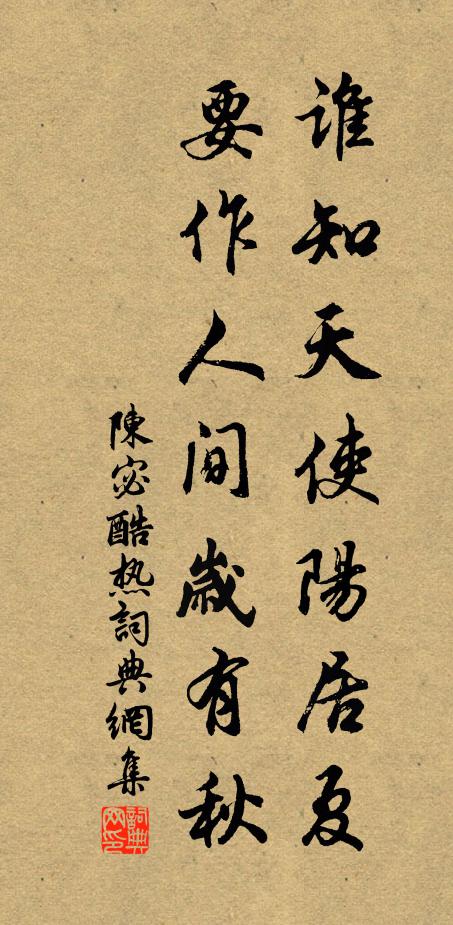 誰知天使陽居夏
要作人間歲有秋
陳宓酷热詞典網集
詞典网印